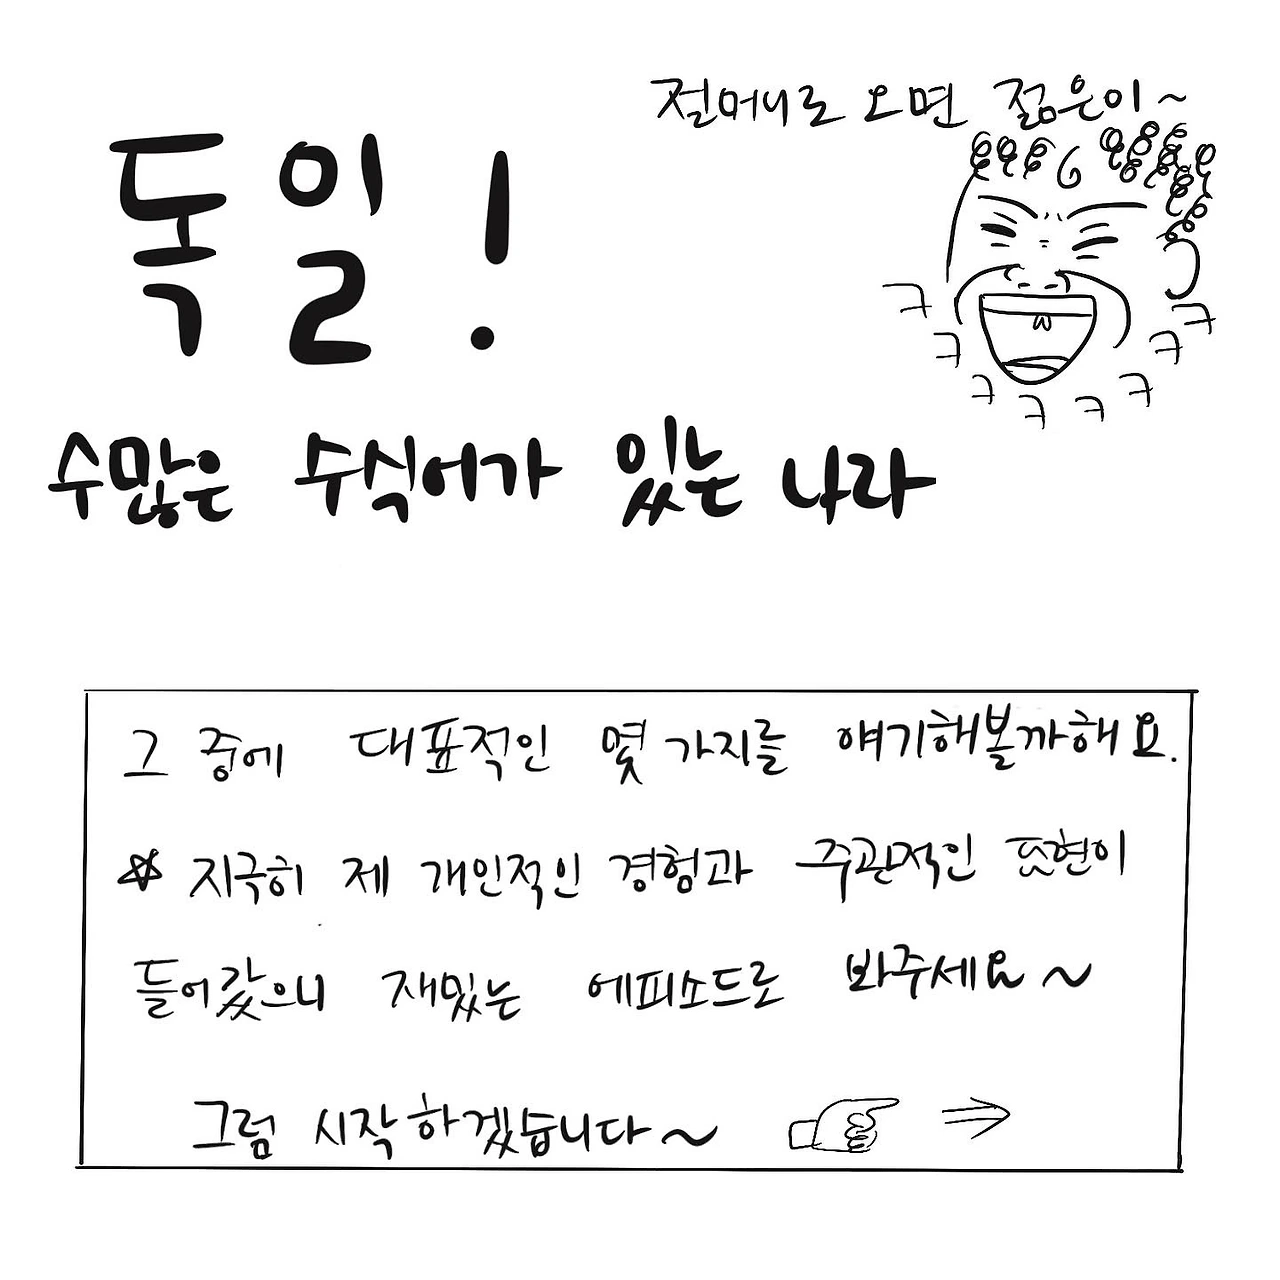 절머니로 오면 젊은이~
독일!
ㅋ ㅋ ㅋ ㅋ ㅋ ㅋ ㅋ ㅋ
수많은 수식어가 있는 나라
그 중에 대표적인 몇 가지를 얘기해볼까해요.
☆ 지극히 제 개인적인 경험과 주관적인 표현이
들어갔으니 재밌는 에피소드로 봐주세요~
그럼 시작하겠습니다~ ⇒